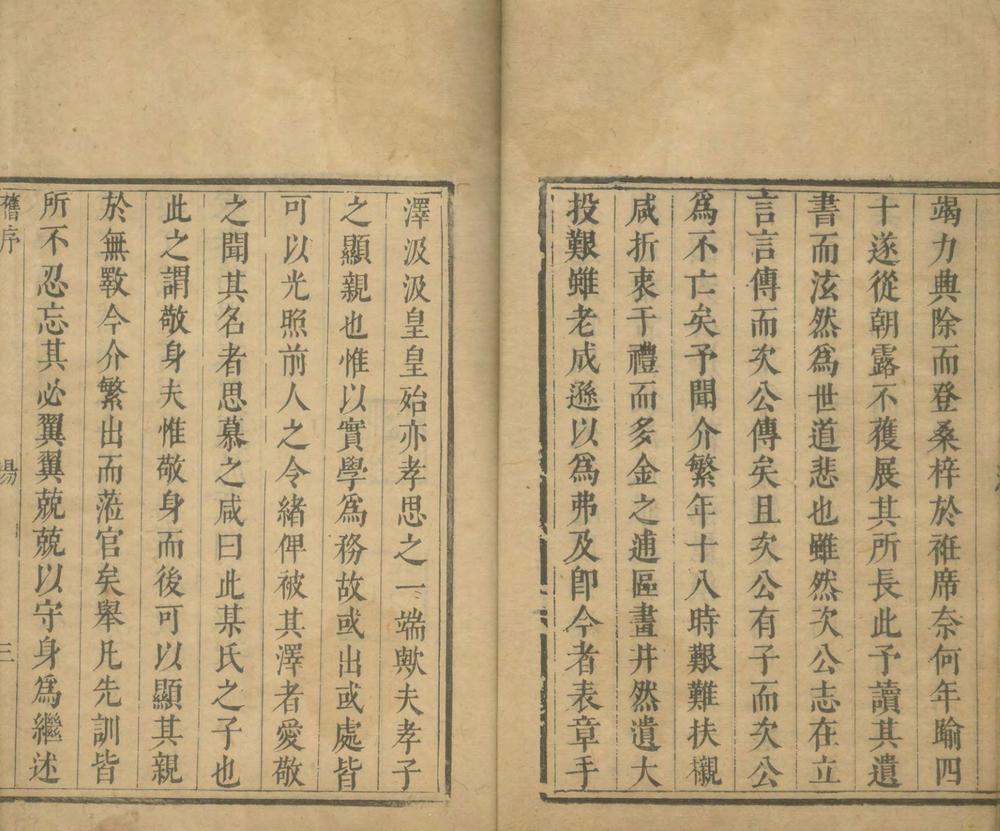 竭力典除而登桑梓於袵席奈何年踰四
十遂從朝露不獲展其所長此予讀其遺
書而泫然爲世道悲也雖然次公志在立
言言傳而次公傳矣且次公有子而次公
爲不亡矣予聞介繁年十八時艱難扶櫬
咸折衷于禮而多金之逋區畫井然遺大
投艱雖老成遜以爲弗及卽今者表章手
澤汲汲皇皇始亦孝思之一端歟夫孝子
之顯親也惟以實學爲務故或出或處皆
可以光照前人之令緒俾被其澤者愛敬
之聞其名者思慕之咸曰此某氏之子也
此之謂敬身夫惟敬身而後可以顯其親
於無斁今介繁出而蒞官矣舉凡先訓皆
所不忍忘其必翼翼兢兢以守身爲繼述
舊序 湯 三